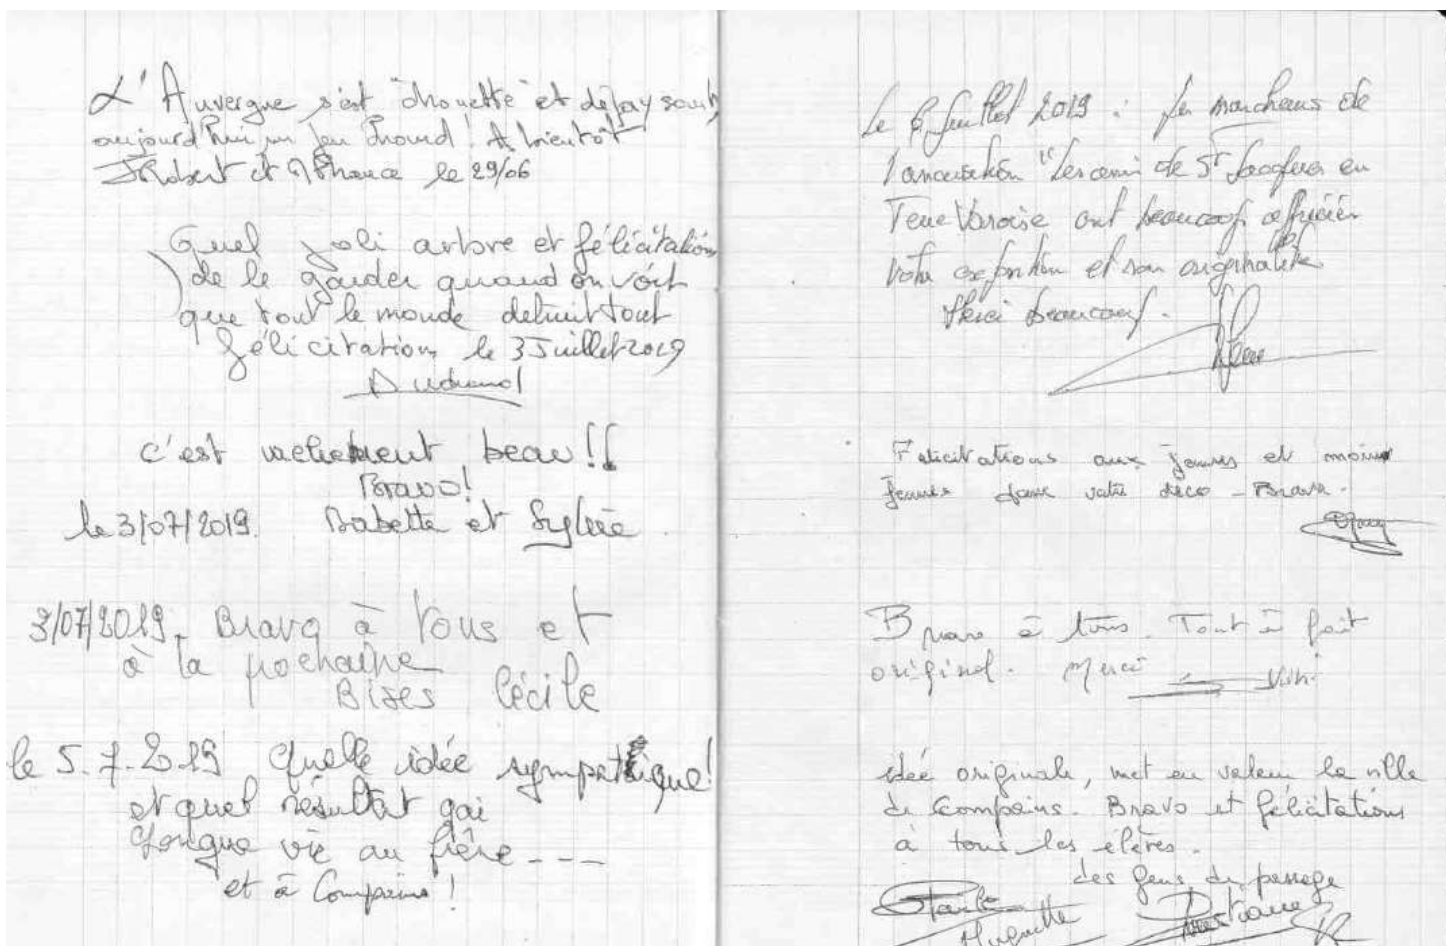 L'Auvergne s'est "chouette" et dépaysant,
aujourd'hui un peu chaud! A bientôt
Robert et France le 29/06
Quel joli arbre et félicitations
de le garder quand on voit
que tout le monde detruit tout
félicitation le 3 Juillet 2019
c'est vachement beau!!
Bravo!
le 3/07/2019. Babette et Sylvie
3/07/2019. Bravo à Vous et
à la pochaine
Bises Cécile
le 5.7.2019 Quelle idée sympathique!
et quel résultat gai
Longue vie au frêne ---
et à Compains!
Le 6 Juillet 2019 : les marcheurs de
l'association "Les amis de St Jacques en
Terre Varoise ont beaucoup apprécier
votre exposition et son originalité
Merci beaucoup.
Félicitations aux jeunes et moins
jeunes pour votre déco - Bravo.
Bravo à tous. Tout à fait
original. Merci
idée originale, met en valeur la ville
de Compains. Bravo et félicitations
à tous les élèves.
des gens de passage
Huguette